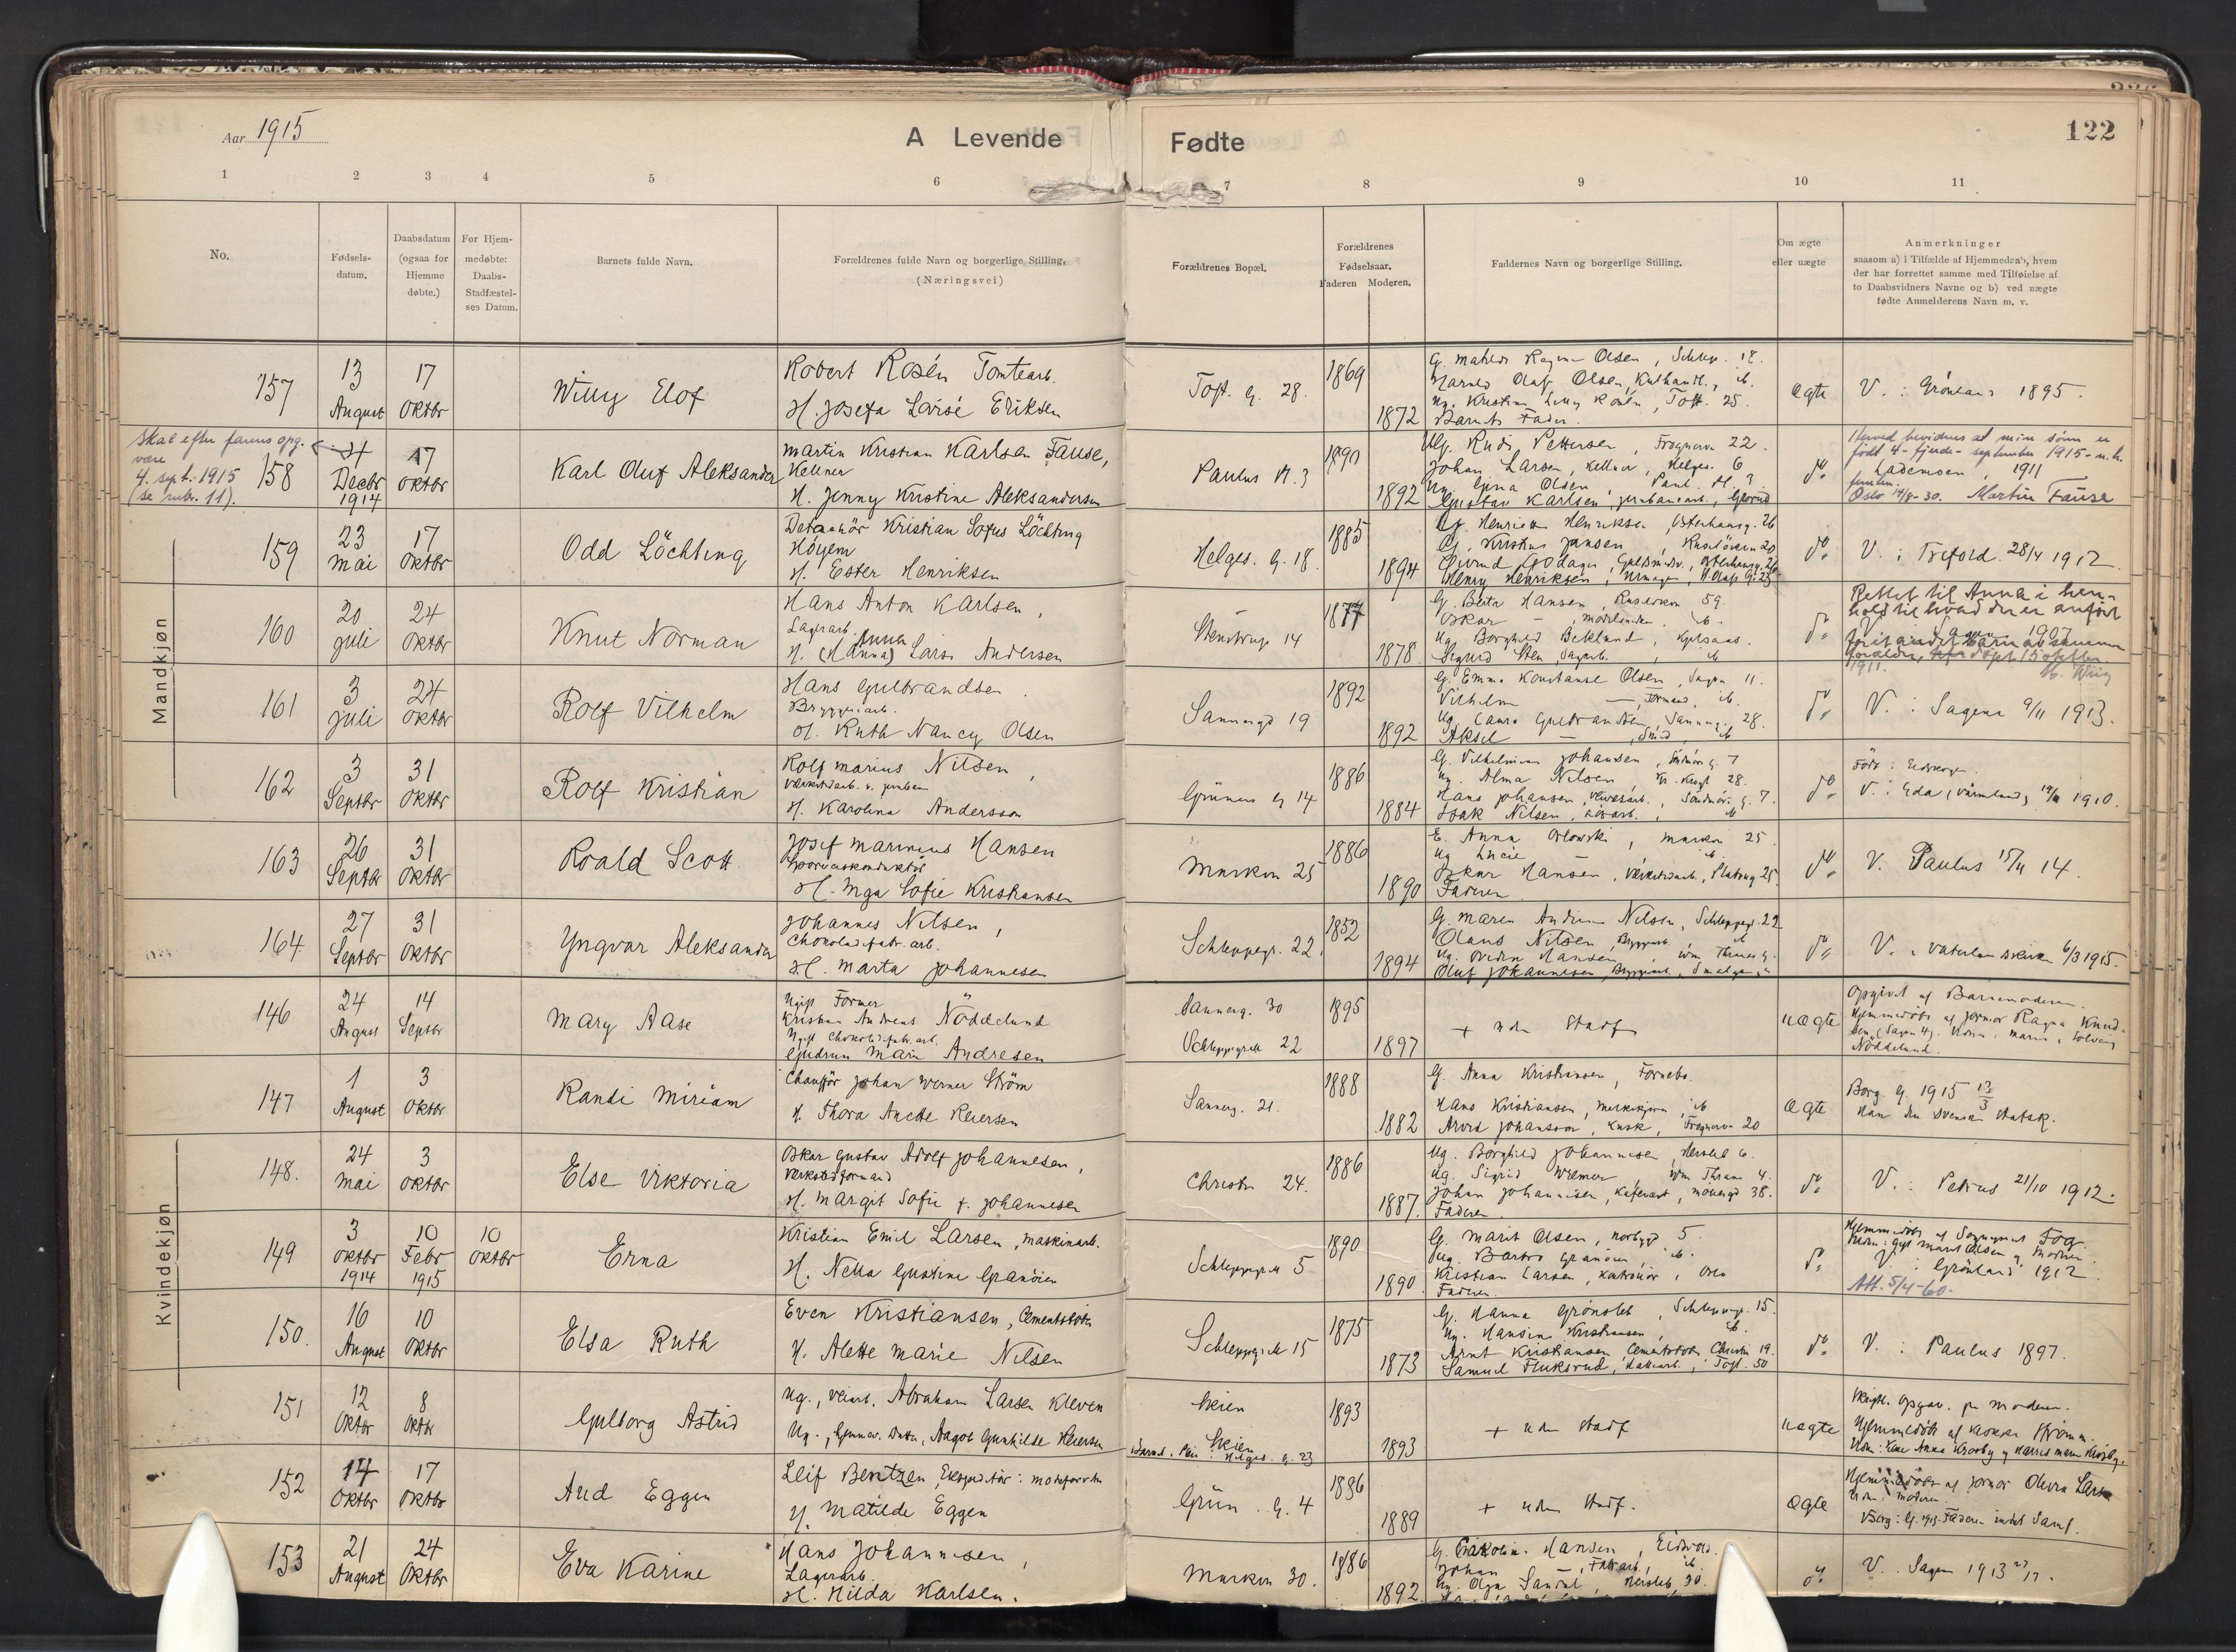 Aar 1915
A Levende Fødte
122
1 2 3 4 5 6 7 8 9 10 11
No.
Fødsels-
datum.
Daabsdatum
(ogsaa for
Hjemme
døbte.)
For Hjem-
medøbte:
Daabs-
Stadfæstel-
ses Datum.
Barnets fulde Navn.
Forældrenes fulde Navn og borgerlige Stilling.
(Næringsvei)
Forældrenes Bopæl.
Forældrenes
Fødselsaar.
Faderen Moderen.
Faddernes Navn og borgerlige Stilling.
Om ægte
eller uægte
Anmerkninger
saasom a) i Tilfælde af Hjemmedaab, hvem
der har forrettet samme med Tilføielse af
to Daabsvidners Navne og b) ved uægte
fødte Anmelderens Navn m. v.
Mandkjøn
157
13
August
17
Oktbr
Willy Elof
Robert Rosén Tomtearb.
H. Josefa Larsé Eriksen
Toft. g. 28.
1869
1872
Olsen
Harald Olaf Olsen, ib.
Barnets Fader
Ægte
V. : Grönland 1895.
Skal efter farens opg.
være
4. sept. 1915
(se rubr. 11).
158
4
Decbr
1914
17
Oktbr
Karl Oluf Aleksander
Martin Kristian Karlsen Fause,
Kellner
H. Jenny Kristine Aleksandersen
Paulus Pl. 3
1890
1892
Ug. Rudi Pettersen, Frognerv 22.
Johan Larsen, Kellner, Helges. 6
Olsen, Paul. Pl. 3
Gustav Karlsen,
do
Herved bevidnes at min sønn er
født 4 - fjerde - september 1915 - n.h.
Lademoen, 1911
Oslo 14/8-30. Martin Fause
159
23
Mai
17
Oktbr
Odd Löchting
Kristian Sofus Löchting
Höyem
H. Ester Henriksen
Helges. g. 18.
1885
1894
Henriksen, Osterhausg. 26
G. Kristine Jansen, 20
Henry Henriksen,
do
V. : Trefold. 28/4 1912.
160
20
Juli
24
Oktbr
Knut Norman
Hans Anton Karlsen,
Lagerarb.
H. (Hanna) Anna Lars. Andersen
Stenstrups 14
1877
1878
G. Berta Hansen, 59.
Oskar — ib.
Ug. Borghild
Sigurd Sten, ib
do
Rettet til Anna i hen-
hold til hvad der er anfört
1907
15 oktbr
1911.
161
3
Juli
24
Oktbr
Rolf Vilhelm
Hans Gulbrandsen
Bryggeriarb.
H. Ruth Nancy Olsen
Sannergd 19
1892
1892
G. Emma Konstanse Olsen, Sagvn 11.
Vilhelm — , Formand, ib.
Ug. Laura Gulbrandsen, Sannerg. 28.
Aksel — , Smed, ib
do
V. : Sagene 9/11 1913.
162
3
Septbr
31
Oktbr
Rolf Kristian
Rolf Marius Nilsen,
H. Karolina Andersson
Grüners g 14
1886
1884
G. Vilhelmine Johansen, Söndmör g. 7
Ug. Alma Nilsen, 28.
Hans Johansen, Söndmör. g. 7.
Isak Nilsen,
do
Född : Eidskogen
V. : Eda (Värmland) 1910.
163
26
Septbr
31
Oktbr
Roald Scott
Josef Marinius Hansen
Sporveiskonduktör
H. Inga Sofie Kristiansen
Markvn 25
1886
1890
E. Anna Orlowski, Markvn 25
Ug. Lucie — ib.
Oskar Hansen, Verkstedarb., 25.
Faderen
do
V. Paulus 15/11 14.
164
27
Septbr
31
Oktbr
Yngvar Aleksander
Johannes Nilsen,
Chokoladefabr. arb.
H. Marta Johannesen
Schleppegr. 22.
1852
1894
G. Maren Andrine Nilsen, Schleppegr. 22
Olaus Nilsen, ib
Hansen, Wm Thranes g.
Oluf Johannesen, Bryggeriarb.,
do
V. : Vaterlandskirken 6/3 1915.
Kvindekjøn
146
24
August
14
Septbr
Mary Aase
Ugift Former
Kristian Andreas Nöddelund
Ugift Chokoladefabr. arb.
Gudrun Marie Andresen
Sannerg. 30
Schleppegrell 22
1895
1897
+ uden Stadf
uægte
Opgivet af Barnemoderen.
Hjemmedøbt af Jormor Ragna Knud-
sen, (Sagvn 4). Vidn. Marie, Solveig
Nöddelund.
147
1
August
3
Oktbr
Randi Miriam
Chauffør Johan Werner Ström
H. Thora Anette Reiersen
Sannerg. 21.
1888
1882
G. Anna Kristiansen, Fornebo.
Hans Kristiansen, ib
Arvid Johansson, Kusk, Frognervn 20
Ægte
Borg. G. 1915 13/3
Han den svenske Statsk.
148.
24
Mai
3
Oktbr
Else Viktoria
Oskar Gustav Adolf Johannesen,
Verkstedformand
H. Margit Sofie f. Johannesen
Christies 24.
1886
1887.
Ug. Borghild Johannesen, Herslebs 6.
Ug. Sigrid Wremer, Wm Thranes 4.
Johan Johannesen, 38.
Faderen
do
V. : Petrus 21/10 1912.
149
3
Oktbr
1914
10
Febr
1915
10
Oktbr
Erna
Kristian Emil Larsen, Maskinarb.
H. Nella Gustine Granöien
Schleppegrell 5
1890
1890
G. Marit Olsen, Norbygd 5.
Ug. Barbro Granöien, ib.
Kristian Larsen, Kontrolör, Oslo
Faderen.
do
Hjemmedøbt af Sognepræst Fog.
Vidn: Gift Marit Olsen og Moderen
V. : Grönland 1912.
Att. 5/4-60.
150.
16
August
10
Oktbr
Elsa Ruth
Even Kristiansen, Cementstöber
H. Alette Marie Nilsen
Schleppegrell 15
1875
1873
G. Hanna Grönslet, Schleppegr. 15.
Ug. Hansine Kristiansen, ib.
Arnt Kristiansen, Cementstöber, Christies 19.
Samuel Fluksrud, Toft. 50
do
V. : Paulus 1897.
151
12
Oktbr
8
Oktbr
Gulborg Astrid
Ug., Veiarb. Abraham Larsen Kleven
Ug., Aagot Gunhilde Reiersen
Skien
Skien
Helges. g. 23
1893
1893
+ uden Stadf
uægte
Skriftl. Opgav. fr Moderen.
Hjemmedøbt af Klokker Strömm.
Vidn: Anna Krosby og Harris Marie Krosby.
152
14
Oktbr
17
Oktbr
Aud Eggen
Leif Bentzen, Ekspeditör i motorforretn
H. Matilde Eggen
Grün. g. 4
1886
1889
+ uden Stadf.
Ægte
Hjemmedøbt af Jormor Olevia Larsen
Vidn: Moderen.
Borg: G. 1913. Faderen intet Samf.
153
21
August
24
Oktbr
Eva Karine
Hans Johannesen,
Lagerarb.
H. Hilda Karlsen.
Markvn 30.
1886
1892.
G. Karoline Hansen, Eidsvold.
Johan — , Fabrarb., ib
Ug. Olga Sandal, Herslebs. 30.
do
V. Sagene 1913